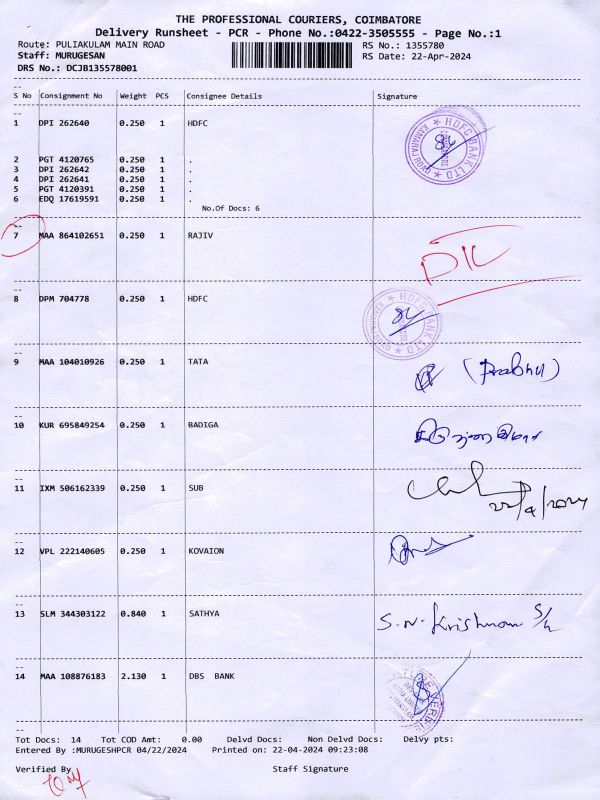 THE PROFESSIONAL COURIERS, COIMBATORE
Delivery Runsheet - PCR - Phone No.:0422-3505555 - Page No.:1
Route: PULIAKULAM MAIN ROAD RS No.: 1355780
Staff: MURUGESAN RS Date: 22-Apr-2024
DRS No.: DCJB135578001
--
S No Consignment No Weight PCS Consignee Details Signature
--
1 DPI 262640 0.250 1 HDFC
HDFC BANK LTD
KAMARAJ ROAD
2 PGT 4120765 0.250 1 .
3 DPI 262642 0.250 1 .
4 DPI 262641 0.250 1 .
5 PGT 4120391 0.250 1 .
6 EDQ 17619591 0.250 1 .
No.Of Docs: 6
--
7 MAA 864102651 0.250 1 RAJIV
--
8 DPM 704778 0.250 1 HDFC
HDFC BANK LTD
KAMARAJ ROAD
--
9 MAA 104010926 0.250 1 TATA (Prabhu)
--
10 KUR 695849254 0.250 1 BADIGA
--
11 IXM 506162339 0.250 1 SUB
22/4/2024
--
12 VPL 222140605 0.250 1 KOVAION
--
13 SLM 344303122 0.840 1 SATHYA S.N. Krishnan
--
14 MAA 108876183 2.130 1 DBS BANK
--
Tot Docs: 14 Tot COD Amt: 0.00 Delvd Docs: Non Delvd Docs: Delvy pts:
Entered By :MURUGESHPCR 04/22/2024 Printed on: 22-04-2024 09:23:08
Verified By Staff Signature